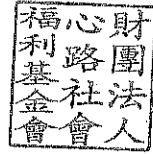 財團法人
心路社會
福利基金會